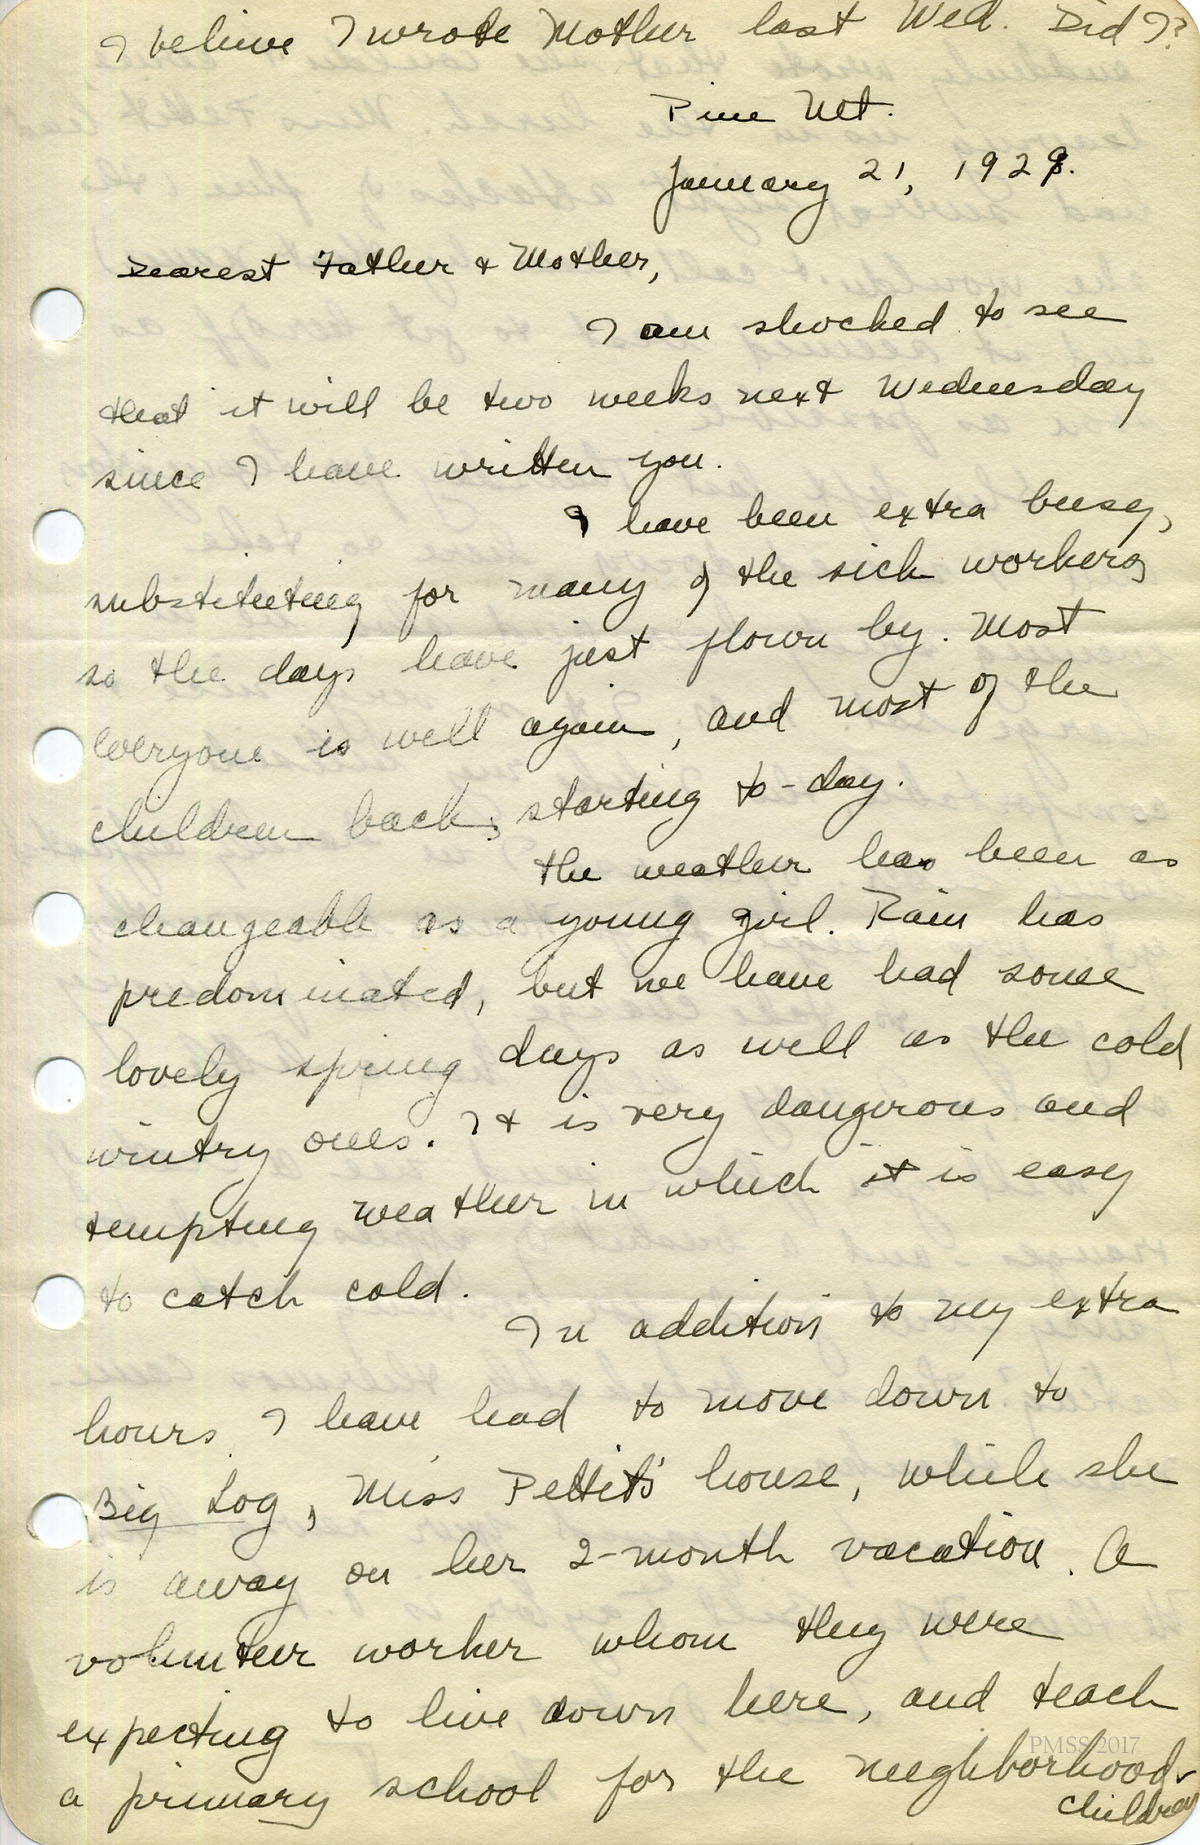 I believe I wrote Mother last Wed. Did I?
Pine Mt.
January 21, 1929.
Dearest Father & Mother,
I am shocked to see
that it will be two weeks next Wednesday
since I have written you.
I have been extra busy,
substituting for many of the sick workers,
so the days have just flown by. Most
everyone is well again, and most of the
children back, starting to-day.
The weather has been as
changeable as a young girl. Rain has
predominated, but we have had some
lovely spring days as well as the cold
wintry ones. It is very dangerous and
tempting weather in which it is easy
to catch cold.
In addition to my extra
hours I have had to move down to
Big Log, Miss Pettit's house, while she
is away on her 2-month vacation. A
volunteer worker whom they were
expecting to live down here, and teach
a primary school for the neighborhood
children
PMSS 2017